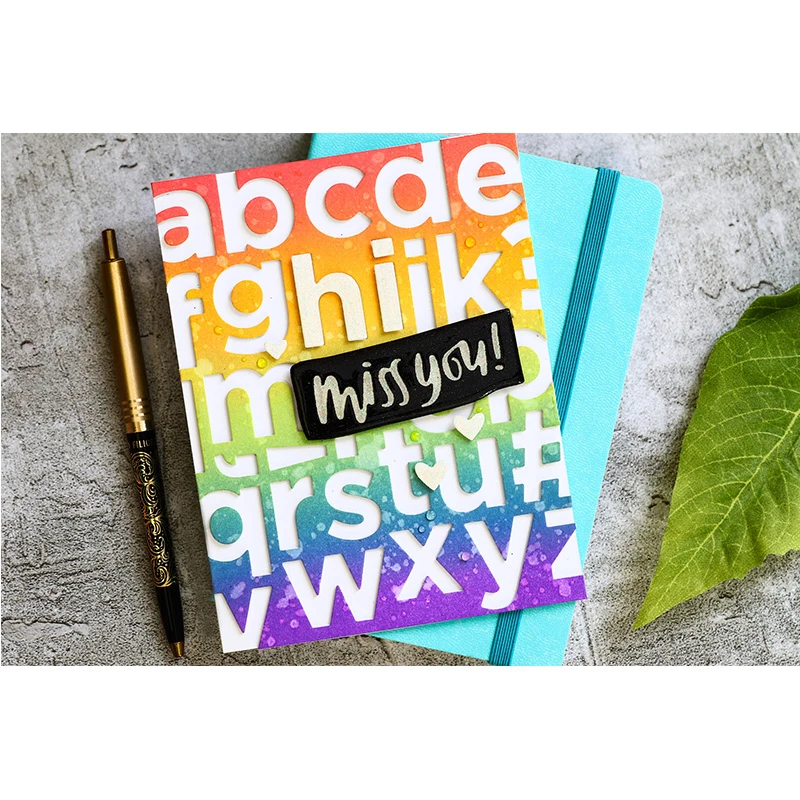 abcde
fghijk?
miss you!
qrstu#
vwxyz